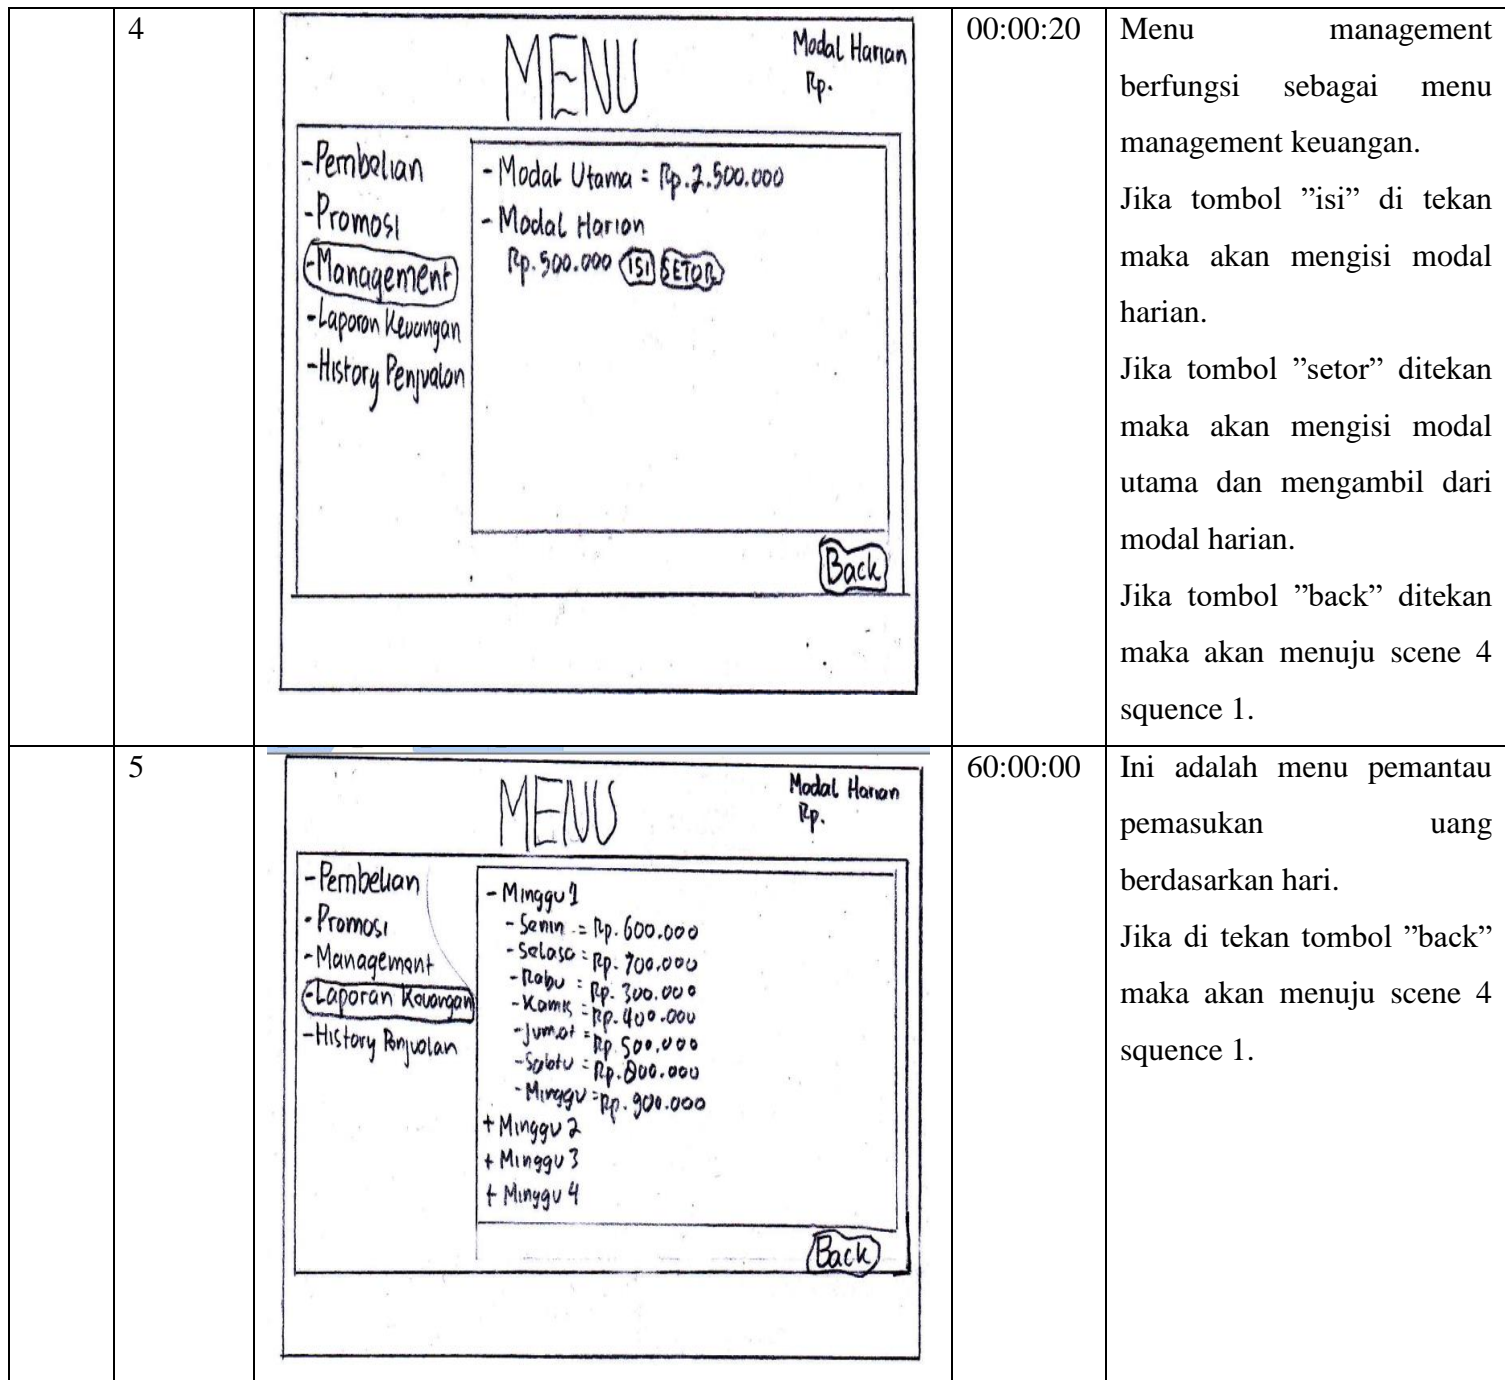 4
MENU
Modal Harian
Rp.
-Pembelian
-Promosi
-Management
-Laporan Keuangan
-History Penjualan
- Modal Utama = Rp.2.500.000
- Modal Harian
Rp.500.000 ISI SETOR
Back
00:00:20
Menu management
berfungsi sebagai menu
management keuangan.
Jika tombol ”isi” di tekan
maka akan mengisi modal
harian.
Jika tombol ”setor” ditekan
maka akan mengisi modal
utama dan mengambil dari
modal harian.
Jika tombol ”back” ditekan
maka akan menuju scene 4
squence 1.
5
MENU
Modal Harian
Rp.
-Pembelian
-Promosi
-Management
-Laporan Keuangan
-History Penjualan
- Minggu 1
- Senin = Rp. 600.000
- Selasa = Rp. 700.000
- Rabu = Rp. 300.000
- Kamis = Rp. 400.000
- Jumat = Rp. 500.000
- Sabtu = Rp. 800.000
- Minggu = Rp. 900.000
+ Minggu 2
+ Minggu 3
+ Minggu 4
Back
60:00:00
Ini adalah menu pemantau
pemasukan uang
berdasarkan hari.
Jika di tekan tombol ”back”
maka akan menuju scene 4
squence 1.